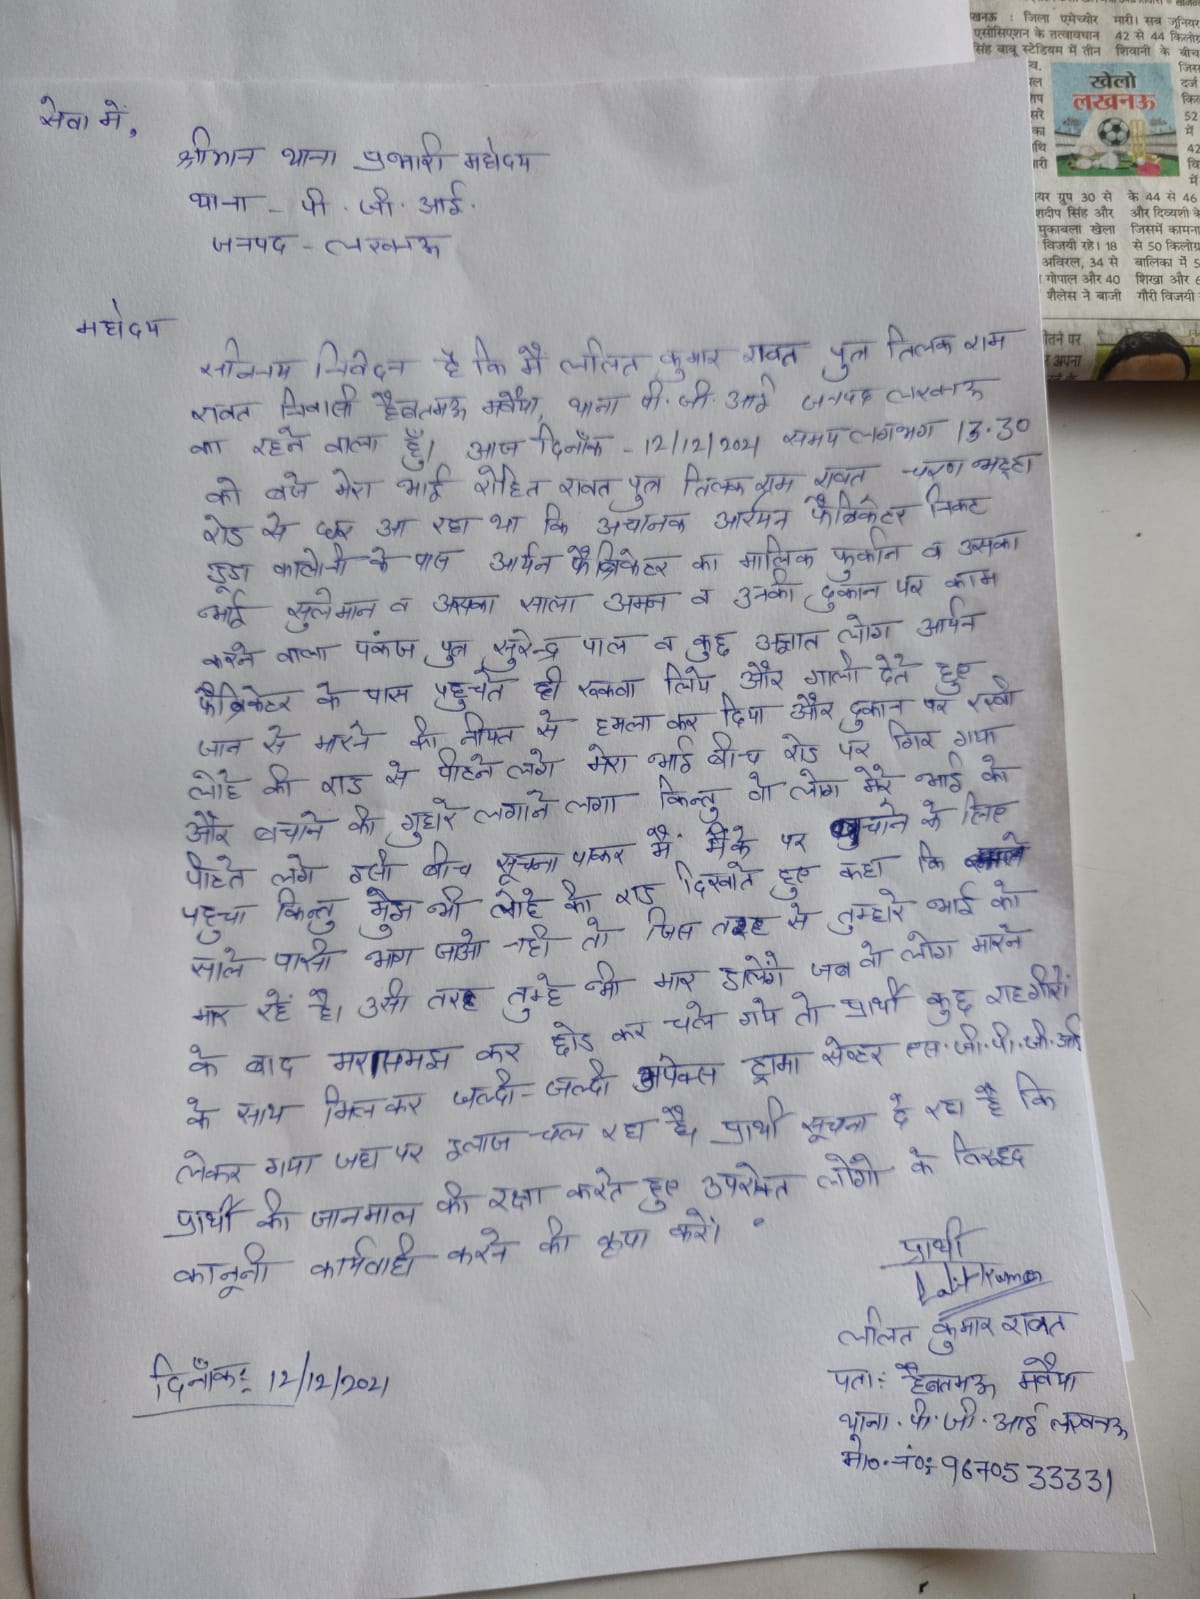 सेवा में,
श्रीमान थाना प्रभारी महोदय
थाना - पी. जी. आई.
जनपद - लखनऊ
महोदय
सविनय निवेदन है कि मैं ललित कुमार रावत पुत्र तिलक राम
रावत निवासी हैबतमऊ मवैया, थाना पी. जी. आई जनपद लखनऊ
का रहने वाला हूँ। आज दिनाँक - 12/12/2021 समय लगभग 13.30
को बजे मेरा भाई रोहित रावत पुत्र तिलक राम रावत चरण भट्ठा
रोड से घर आ रहा था कि अचानक आर्यन फैब्रिकेटर निकट
डूडा कालोनी के पास आर्यन फैब्रिकेटर का मालिक फुर्कान व उसका
भाई सुलेमान व उसका साला अमन व उनकी दुकान पर काम
करने वाला पंकज पुत्र सुरेन्द्र पाल व कुछ अज्ञात लोग आर्यन
फैब्रिकेटर के पास पहुचते ही रूकवा लिये और गाली देते हुए
जान से मारने की नीयत से हमला कर दिया और दुकान पर रखी
लोहे की राड से पीटने लगे मेरा भाई बीच रोड पर गिर गया
और बचाने की गुहारे लगाने लगा किन्तु वो लोग मेरे भाई को
पीटते लगे इसी बीच सूचना पाकर मैं मौके पर बचाने के लिए
पहुचा किन्तु मुझे भी लोहे की राड दिखाते हुए कहा कि
साले पासी भाग जाओ नही तो जिस तरह से तुम्हारे भाई को
मार रहे है। उसी तरह तुम्हे भी मार डालेंगे जब वो लोग मारने
के बाद मरासमझ कर छोड कर चले गये तो प्रार्थी कुछ राहगीरों
के साथ मिलकर जल्दी-जल्दी अपेक्स ट्रामा सेन्टर एस.जी.पी.जी.आई
लेकर गया जहा पर इलाज चल रहा है। प्रार्थी सूचना दे रहा है कि
प्रार्थी की जानमाल की रक्षा करते हुए उपरोक्त लोगो के विरूद्द
कानूनी कार्यवाही करने की कृपा करें।
प्रार्थी
Lalit Kumar
ललित कुमार रावत
पता: हैबतमऊ मवैया
थाना. पी. जी. आई लखनऊ
मो0. नं0: 9670533331
दिनाँक: 12/12/2021
खनऊ : जिला एमेच्योर
एसोसिएशन के तत्वावधान
सिंह बाबू स्टेडियम में तीन
मारी। सब जूनियर
42 से 44 किलोग्र
शिवानी के बीच
खेलो
लखनऊ
यर ग्रुप 30 से
शदीप सिंह और
मुकाबला खेला
विजयी रहे। 18
अविरल, 34 से
गोपाल और 40
शैलेस ने बाजी
के 44 से 46
और दिव्यशी के
जिसमें कामना
से 50 किलोग्र
बालिका में 5
शिखा और 6
गौरी विजयी